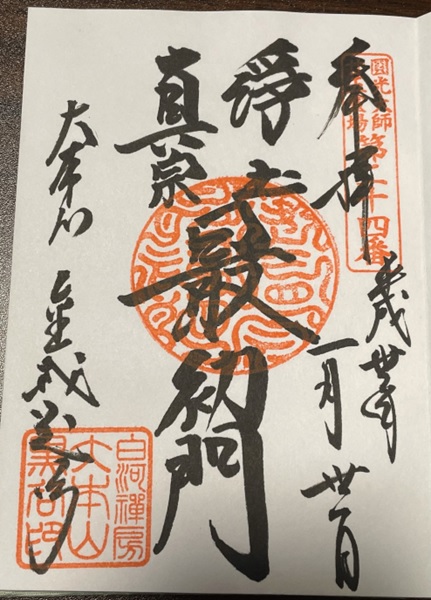 奉拝
圓光大師
霊場
第二十四番
平成卅年
一月
淨土
最初門
真宗
大本山
金戒光明寺
白河禪房
大本山
黒谷印